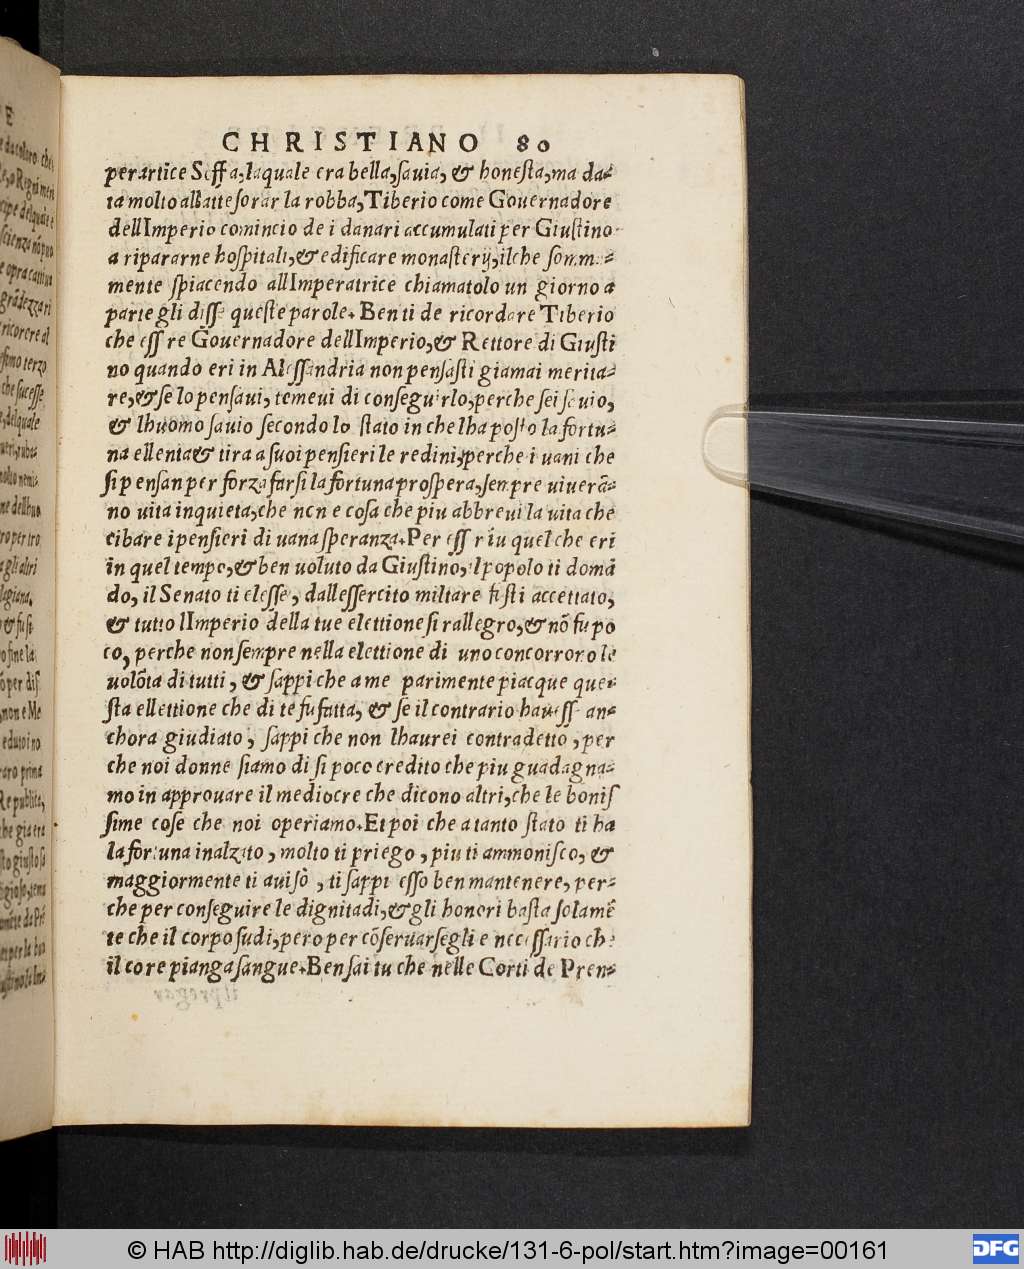 CHRISTIANO 80
perartice Soffa, laquale era bella, savia, & honesta, ma da⸗
ta molto allattesorar la robba, Tiberio come Gouernadore
dellImperio comincio de i danari accumulati per Giustino
a ripararne hospitali, & edificare monasterij, ilche somma⸗
mente spiacendo allImperatrice chiamatolo un giorno a
parte gli disse queste parole. Ben ti de ricordare Tiberio
che essere Gouernadore dellImperio, & Rettore di Giusti
no quando eri in Alessandria non pensasti giamai merita⸗
re, & se lo pensaui, temeui di conseguirlo, perche sei sauio,
& lhuomo sauio secondo lo stato in che lha posto la fortu⸗
na ellenta & tira a suoi pensieri le redini, perche i uani che
si pensan per forza farsi la fortuna prospera, sempre uiuerã⸗
no uita inquieta, che non e cosa che piu abbreui la uita che
cibare i pensieri di uana speranza. Per esser tu quel che eri
in quel tempo, & ben uoluto da Giustino, il popolo ti domã
do, il Senato ti elesse, dallessercito miltare fusti accettato,
& tutto lImperio della tue elettione si rallegro, & nõ fu po
co, perche non sempre nella elettione di uno concorrono le
uolõta di tutti, & sappi che a me parimente piacque que⸗
sta ellettione che di te fu fatta, & se il contrario hauesse an⸗
chora giudiato, sappi che non lhaurei contradetto, per
che noi donne siamo di si poco credito che piu guadagna⸗
mo in approuare il mediocre che dicono altri, che le bonis
sime cose che noi operiamo. Et poi che a tanto stato ti ha
la fortuna inalzato, molto ti priego, piu ti ammonisco, &
maggiormente ti auisò, ti sappi esso ben mantenere, per⸗
che per conseguire le dignitadi, & gli honori basta solamẽ
te che il corpo sudi, pero per cõseruarsegli e necessario che
il core pianga sangue. Ben sai tu che nelle Corti de Pren⸗
© HAB http://diglib.hab.de/drucke/131-6-pol/start.htm?image=00161
DFG